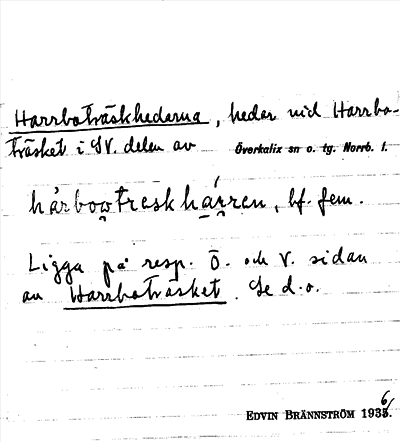 Harrboträskhedarna, hedar vid Harrbo-
träsket i SV. delen av Överkalix sn o. tg. Norrb. l.
hárbow̯treskhá̯r̯ren, bf. fem.
Ligga på resp. Ö. och V. sidan
av Harrboträsket. Se d.o.
EDVIN BRÄNNSTRÖM 1936.